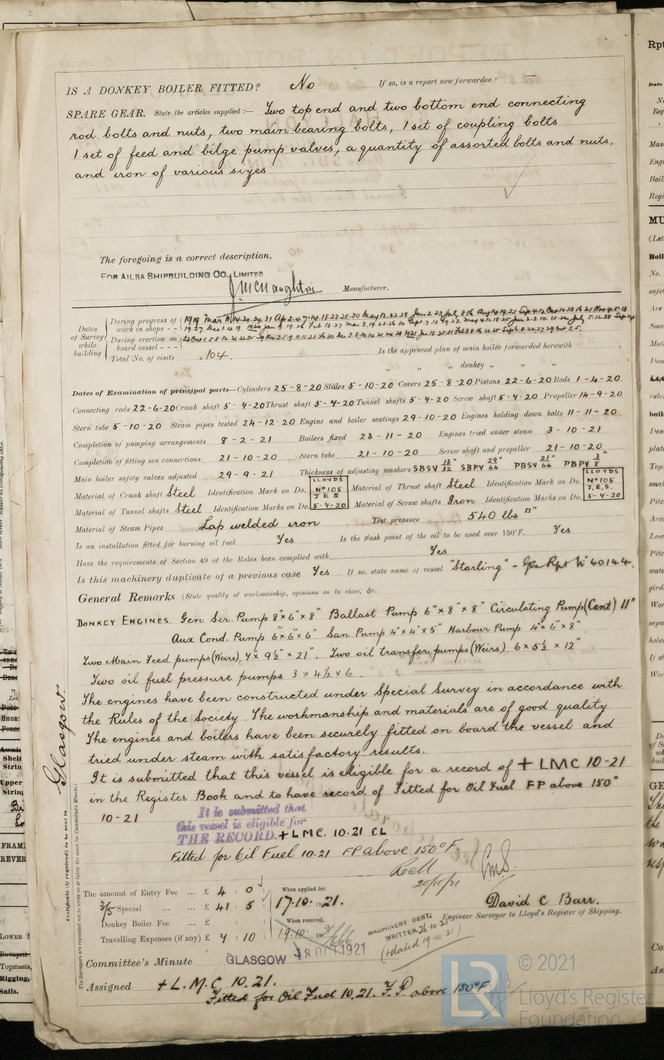 IS A DONKEY BOILER FITTED? No If so, is a report now forwarded? —
SPARE GEAR. State the articles supplied:— Two top end and two bottom end connecting
rod bolts and nuts, two main bearing bolts, 1 set of coupling bolts
1 set of feed and bilge pump valves, a quantity of assorted bolts and nuts,
and iron of various sizes
The foregoing is a correct description,
FOR AILSA SHIPBUILDING CO. LIMITED
J. McNaughton Manufacturer.
Dates of Survey while building
During progress of work in shops - -
During erection on board vessel - - -
Total No. of visits 104.
Is the approved plan of main boiler forwarded herewith
" " " donkey " " "
Dates of Examination of principal parts—Cylinders 25-8-20 Slides 5-10-20 Covers 25-8-20 Pistons 22-6-20 Rods 1-4-20
Connecting rods 22-6-20 Crank shaft 5-4-20 Thrust shaft 5-4-20 Tunnel shafts 5-4-20 Screw shaft 5-4-20 Propeller 14-9-20
Stern tube 5-10-20 Steam pipes tested 24-12-20 Engine and boiler seatings 29-10-20 Engines holding down bolts 11-11-20
Completion of pumping arrangements 8-2-21 Boilers fixed 23-11-20 Engines tried under steam 3-10-21
Completion of fitting sea connections 21-10-20 Stern tube 21-10-20 Screw shaft and propeller 21-10-20
Main boiler safety valves adjusted 29-9-21 Thickness of adjusting washers SBSV SBPV PBSV PBPV
Material of Crank shaft Steel Identification Mark on Do. LLOYDS Nº 105 J E S 5-4-20 Material of Thrust shaft Steel Identification Mark on Do. LLOYDS Nº 105 J.E.S. 5-4-20
Material of Tunnel shafts Steel Identification Marks on Do. Material of Screw shafts Iron Identification Marks on Do.
Material of Steam Pipes Lap welded iron Test pressure 540 lbs □"
Is an installation fitted for burning oil fuel Yes Is the flash point of the oil to be used over 150°F. Yes
Have the requirements of Section 49 of the Rules been complied with Yes
Is this machinery duplicate of a previous case Yes If so, state name of vessel "Starling" - Gls Rpt Nº 40144.
General Remarks (State quality of workmanship, opinions as to class, &c.
DONKEY ENGINES. Gen Ser. Pump 8"x6"x8" Ballast Pump 6"x8"x8" Circulating Pump (Cent) 11"
Aux Cond. Pump 6"x6"x6" San. Pump 4"x4"x5" Harbour Pump 4"x6"x8"
Two Main Feed pumps (Weirs) 7"x9½"x21". Two oil transfer pumps (Weirs) 6x5½x12"
Two oil fuel pressure pumps 3x4½x6.
The engines have been constructed under Special Survey in accordance with
the Rules of the Society. The workmanship and materials are of good quality
The engines and boilers have been securely fitted on board the vessel and
tried under steam with satisfactory results.
It is submitted that this vessel is eligible for a record of + LMC 10-21
in the Register Book and to have record of Fitted for Oil Fuel FP above 150°
10-21
It is submitted that
this vessel is eligible for
THE RECORD. + LMC. 10.21 CL
Fitted for Oil Fuel 10.21 FP above 150°F.
Glasgow
The amount of Entry Fee ... £ 4 : 0 : When applied for,
3/5 Special ... £ 41 : 5 : 17-10-1921.
Donkey Boiler Fee ... £ : : When received,
Travelling Expenses (if any) £ 4 : 10 : 19.10.
David C Barr.
Engineer Surveyor to Lloyd's Register of Shipping.
MACHINERY CERT. WRITTEN
(dated 19.10.21)
Committee's Minute GLASGOW 18 OCT 1921
Assigned + L.M.C. 10.21.
Fitted for Oil Fuel 10.21. F.P. above 150°F.
LR © 2021
Lloyd's Register
Foundation